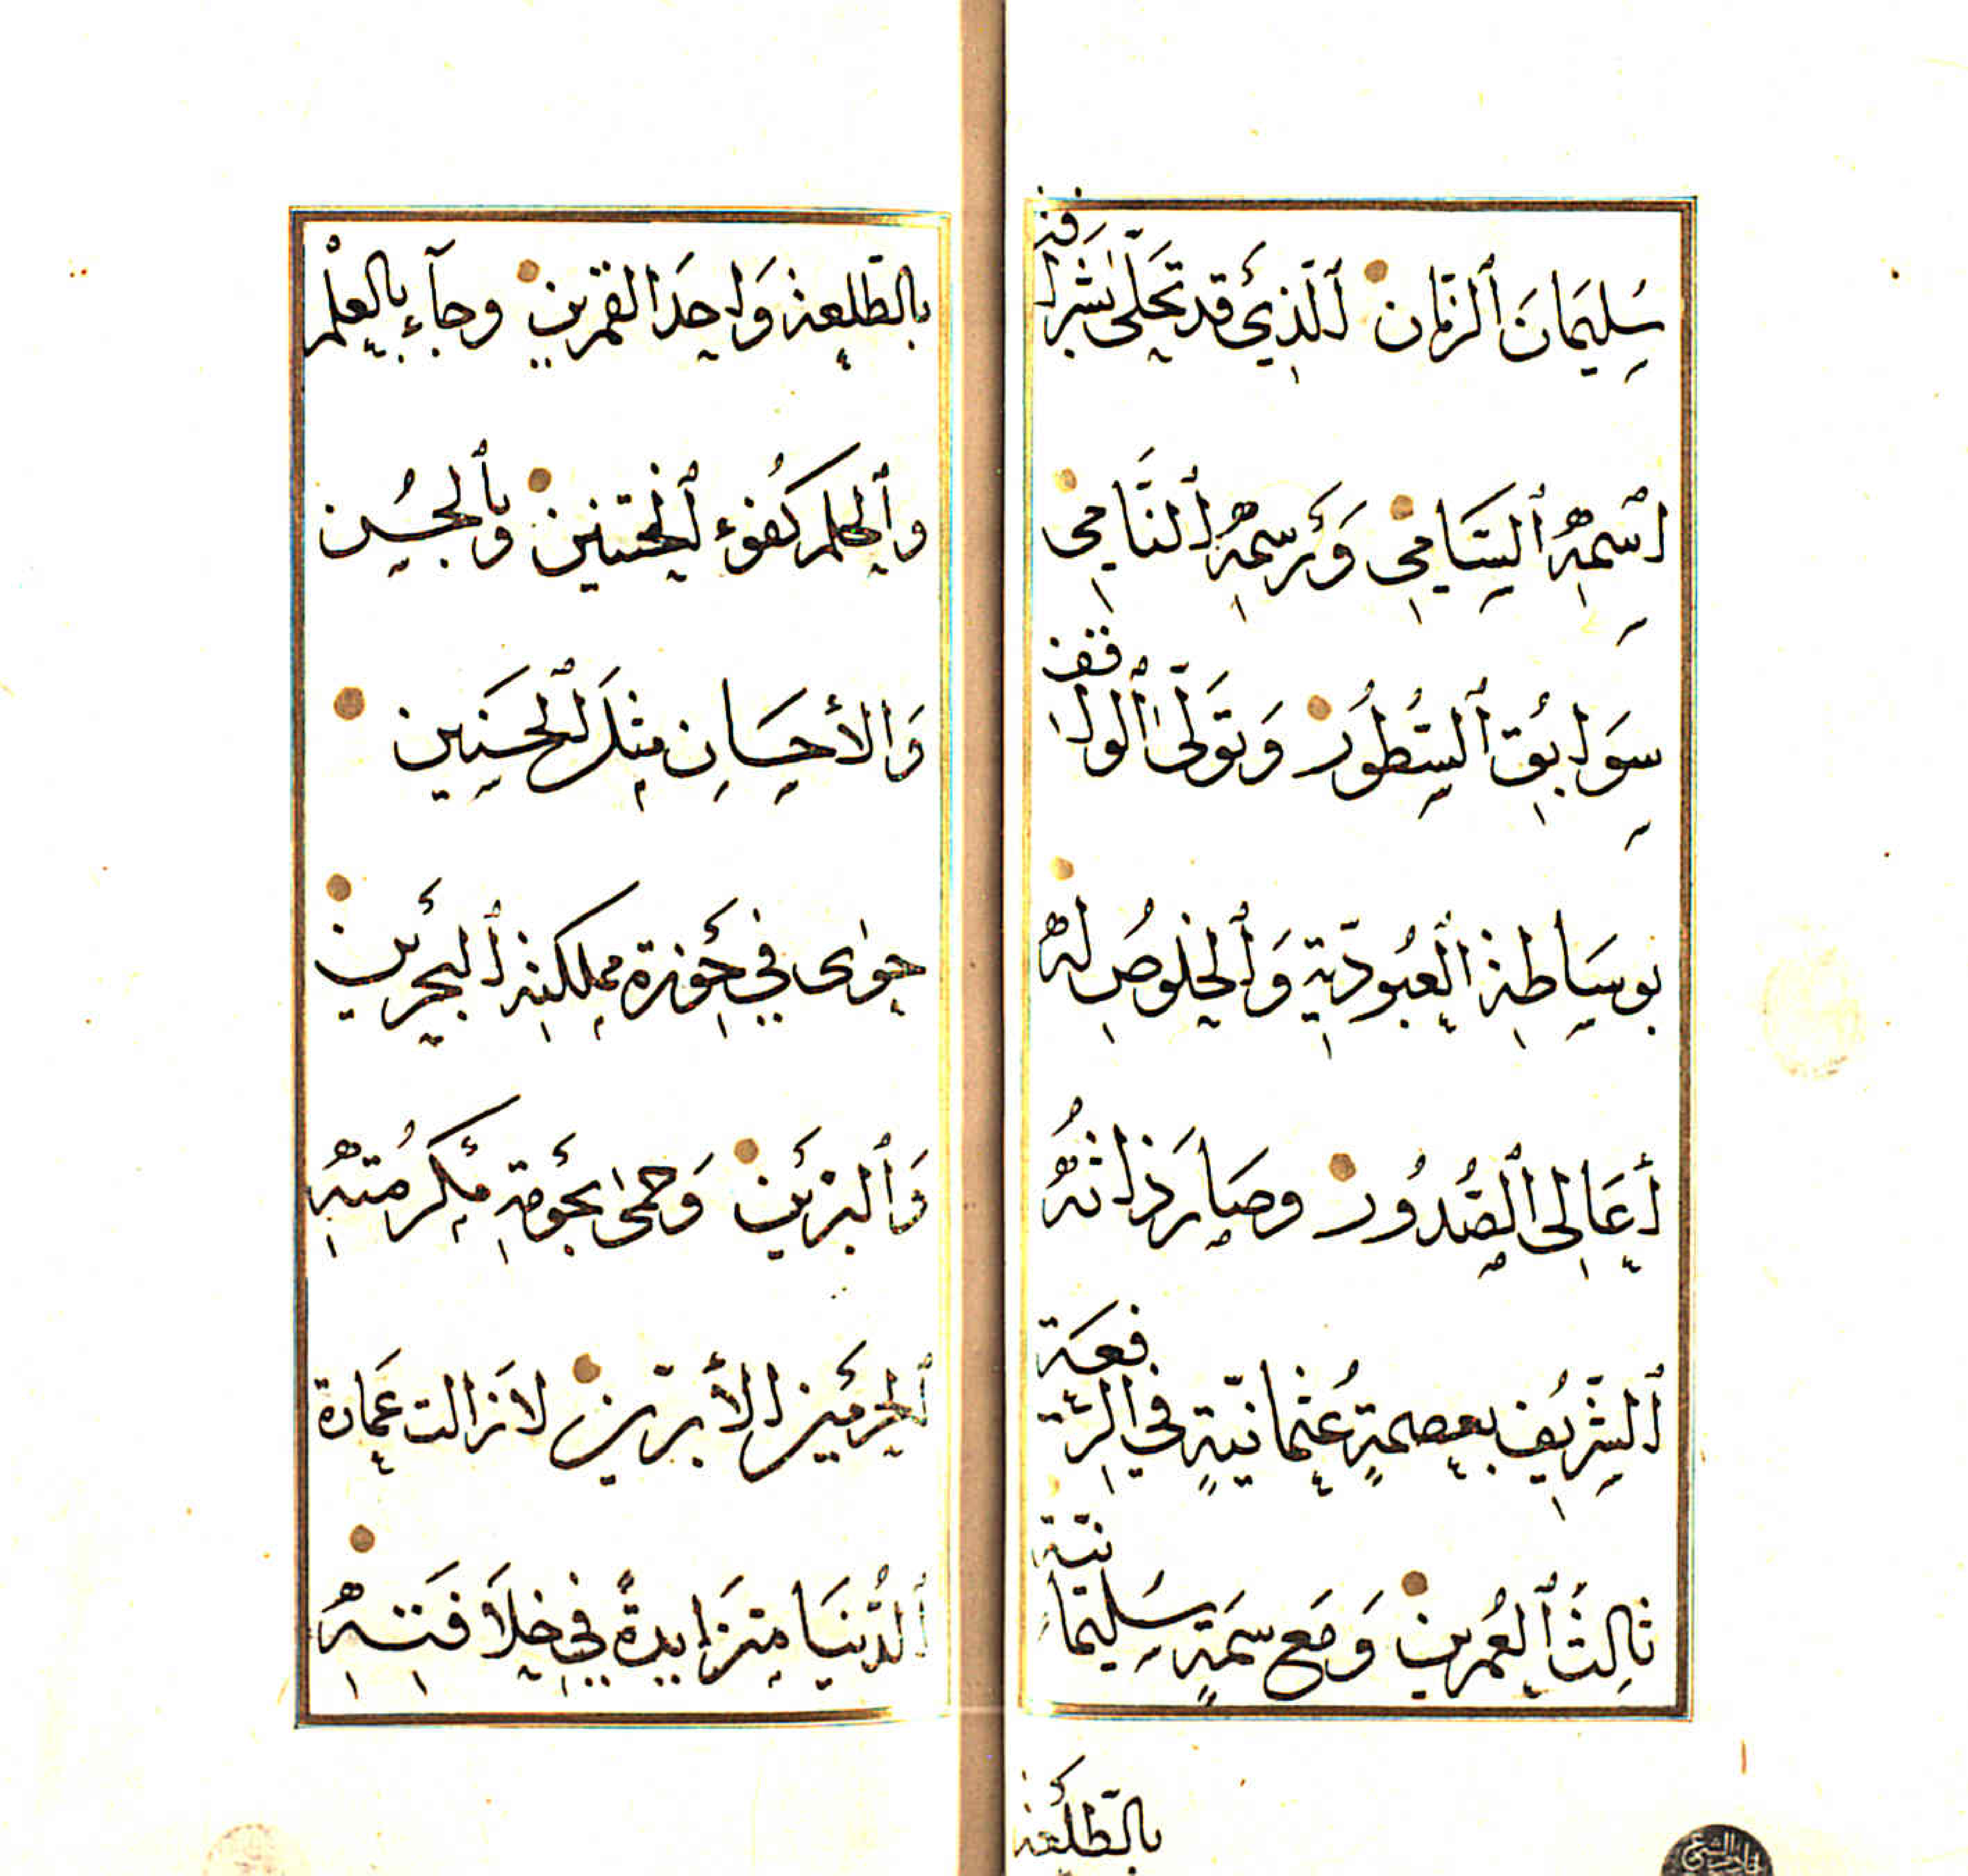 سُلَيمَانَ ٱلزَّمَان ٱلَّذِي قد تَحَلّٰى بشَرافة
اسْمِهِ ٱلسَّامِي وَرَسمِهِ ٱلنَّامِي
سَوَابِقُ ٱلسُّطُور وَتَوَلّٰى ٱلوافقف
بوسَاطِة العُبُودِيّةِ وَٱلخلوصِ لهُ
أعَالِى ٱلصُّدُور وصَارَ ذاتُهُ
ٱلشَّرِيفِ بعصمةٍ عُثمانيّةٍ في الرّفعَة
ثالِثَ ٱلعُمرين وَمَع سمَةٍ سُلَيمانيّة
بالطّلعة
بالطّلعة وَاحِدَ القمرين وجآء بالعِلْم
وٱلحلم كُفوء ٱلختنين وبٱلحُسن
وَالأحسَانِ مثلَ ٱلحسَنين
حوٰى في حَوزة مملكته ٱلبحرَين
وَٱلبرَّين وَحمىٰ بحَومةِ مَكرُمتهِ
ٱلحرَمين الأبرّين لازالت عَمارة
ٱلدُّنيَا متزَايدةً في خلَافَتهِ